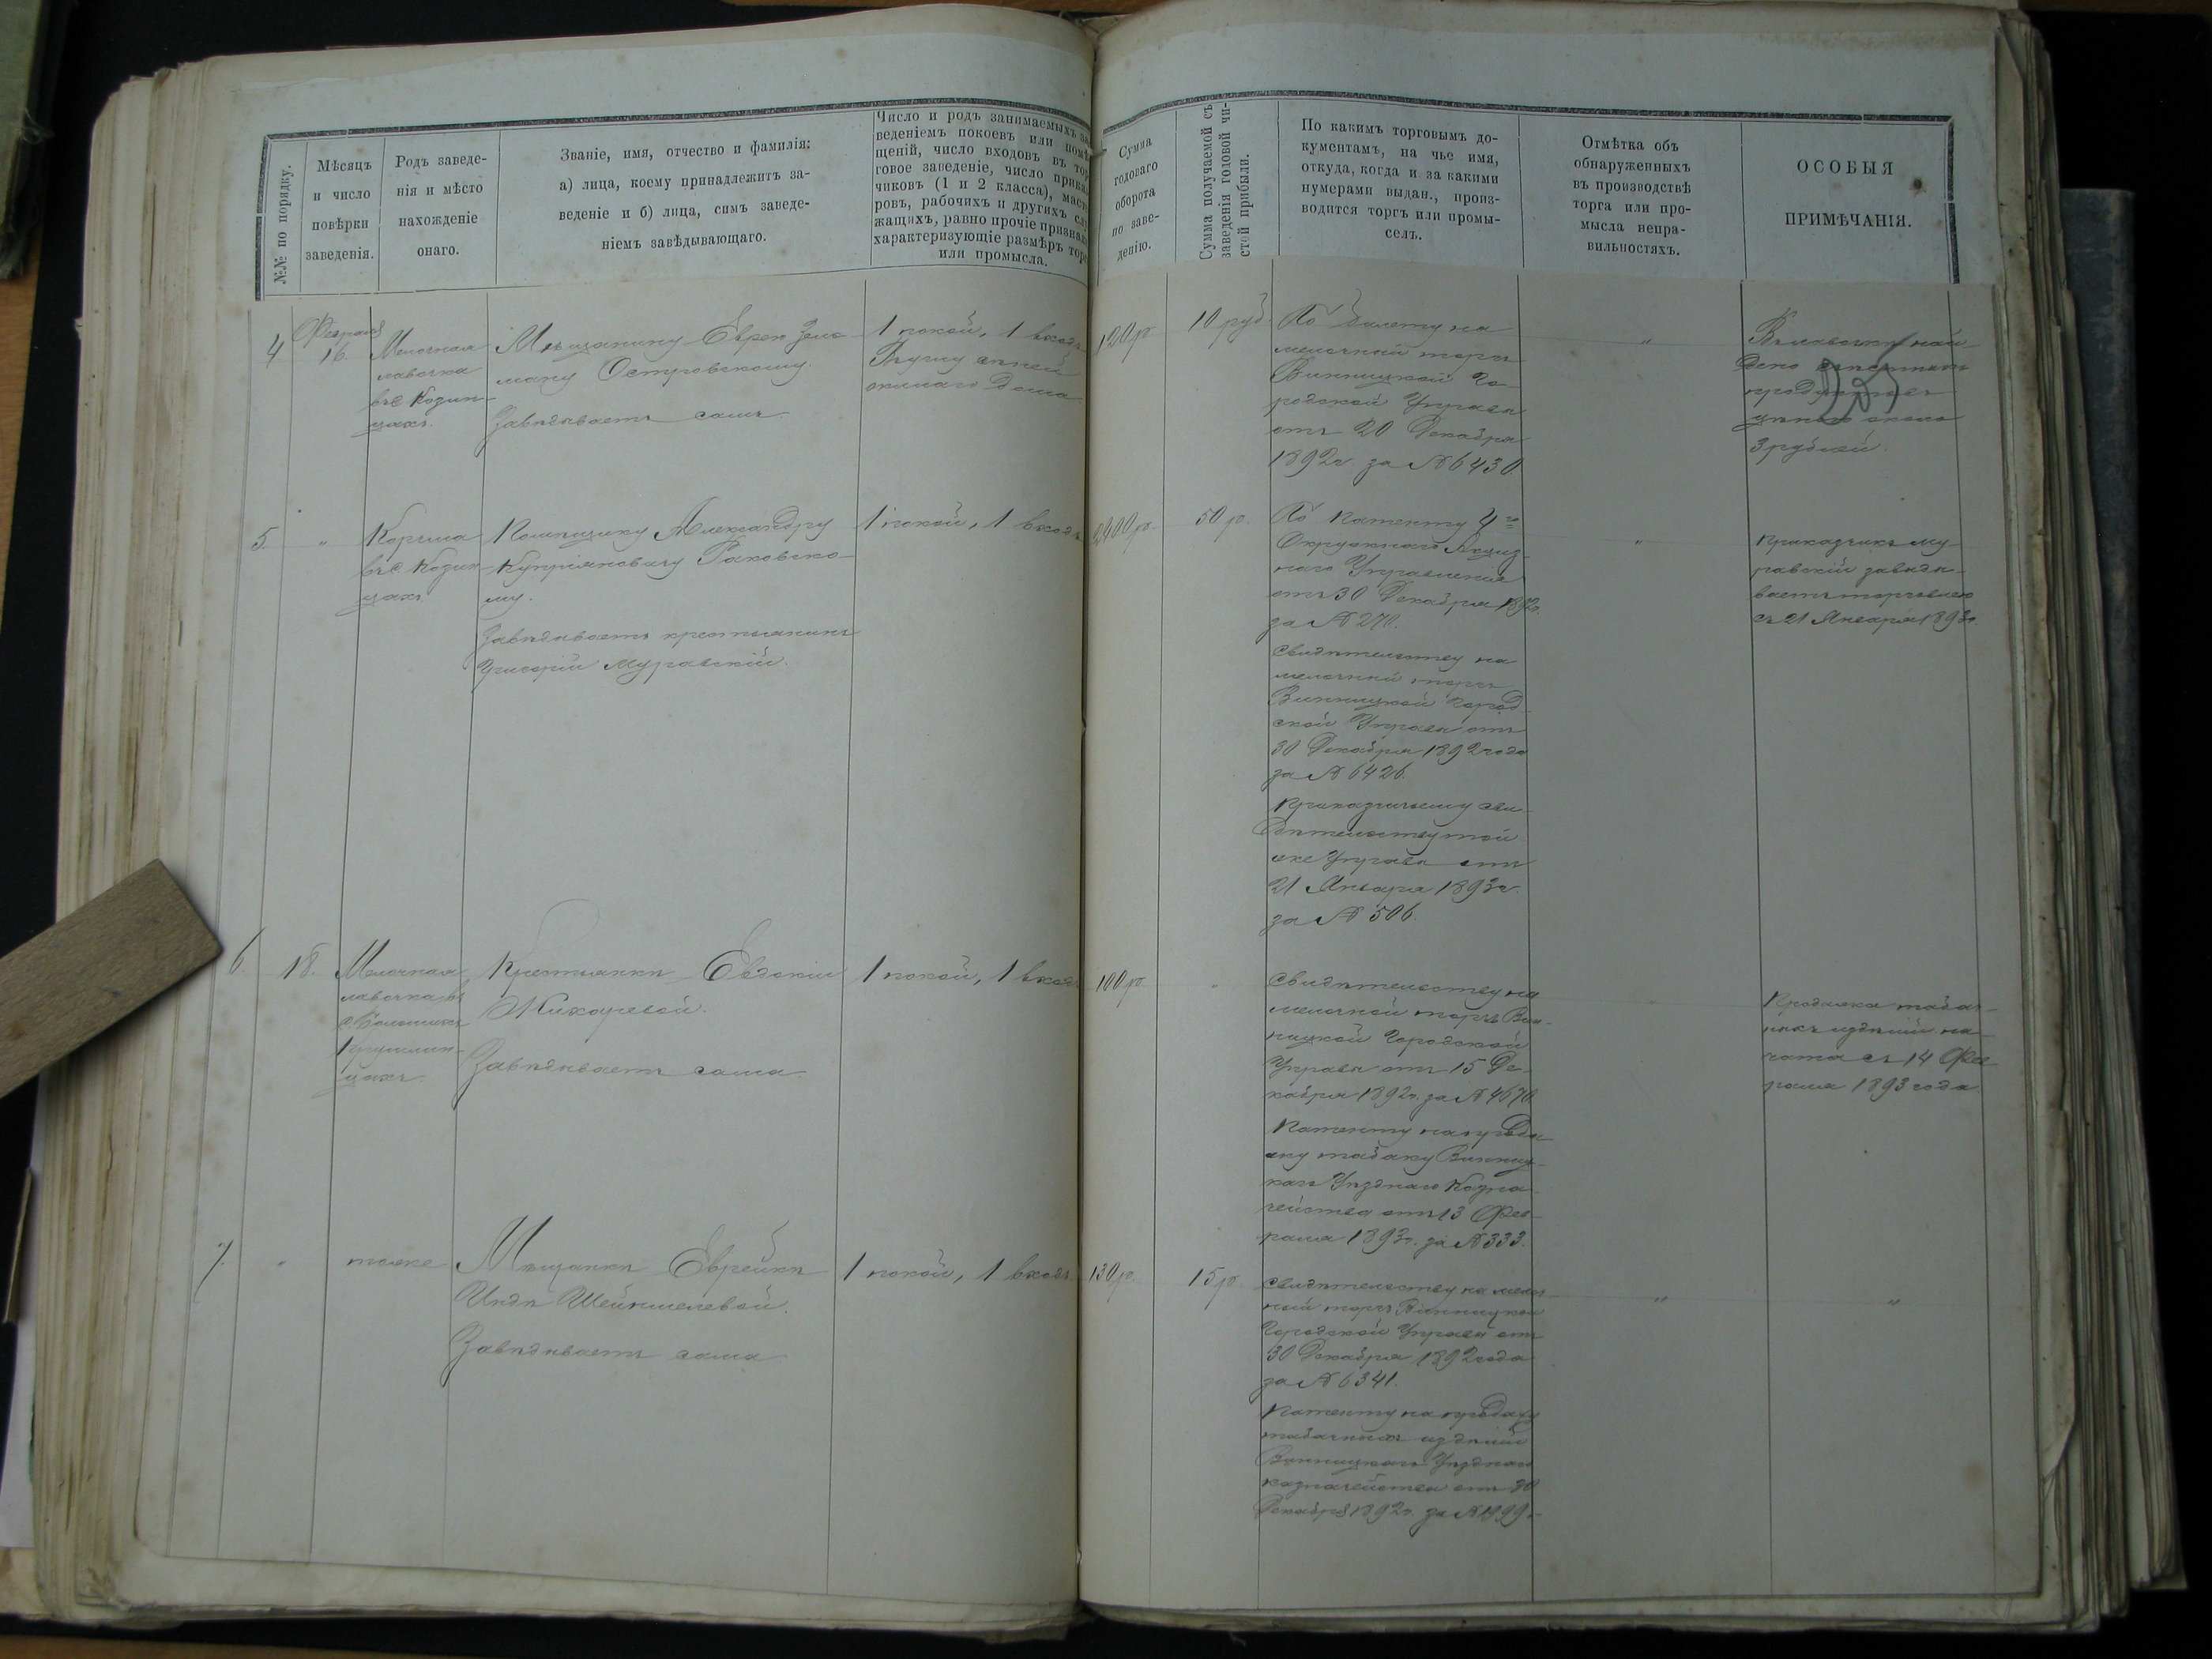 №№ по порядку.
Мѣсяцъ
и число
повѣрки
заведенія.
Родъ заведе-
нія и мѣсто
нахожденіе
онаго.
Званіе, имя, отчество и фамилія:
а) лица, коему принадлежитъ за-
веденіе и б) лица, симъ заведе-
ніемъ завѣдывающаго.
Число и родъ занимаемыхъ за-
веденіемъ покоевъ или помѣ-
щеній, число входовъ въ тор-
говое заведеніе, число прика-
чиковъ (1 и 2 класса), масте-
ровъ, рабочихъ и другихъ слу-
жащихъ, равно прочіе признаки
характеризующіе размѣръ торга
или промысла.
Сумма
годоваго
оборота
по заве-
денію.
Сумма получаемой съ
заведенія годовой чи-
стой прибыли.
По какимъ торговымъ до-
кументамъ, на чье имя,
откуда, когда и за какими
нумерами выдан., произ-
водится торгъ или промы-
селъ.
Отмѣтка объ
обнаруженныхъ
въ производствѣ
торга или про-
мысла непра-
вильностяхъ.
ОСОБЫЯ
ПРИМѢЧАНІЯ.
4
Февраля
16.
Мелочная
лавочка
въ с. Козин-
цахъ.
Мѣщанину Еврею Зель-
ману Островскому.
Завѣдываетъ самъ
1 покой, 1 входъ
Въ углу сѣней
жилаго дома
120 р.
10 руб.
По билету на
мелочный торгъ
Винницкой Го-
родской Управы
отъ 20 Декабря
1892 г. за № 6430
"
Въ лавочкѣ най
дено
продуктовъ
цѣною около
3 рублей.
5.
"
Корчма
въ с. Козин-
цахъ
Помѣщику Александру
Купріяновичу Раковско-
му.
Завѣдываетъ крестьянинъ
Григорій Муравскій.
1 покой, 1 входъ
2400 р.
50 р.
По патенту 4го
Окружнаго Акциз-
наго Управленія
отъ 30 Декабря 1892 г.
за № 270.
свидѣтельству на
мелочной торгъ
Винницкой Город-
ской Управы отъ
30 Декабря 1892 года
за № 6426.
Приказчичьему сви-
дѣтельству той
же Управы отъ
21 Января 1893 г.
за № 506.
"
Приказчикъ Му-
равскій завѣды-
ваетъ торговлею
съ 21 Января 1893 г.
6.
18.
Мелочная
лавочка въ
с.
цахъ.
Крестьянки Евдокіи
Жихаревой.
Завѣдываетъ сама.
1 покой, 1 входъ
100 р.
"
Свидѣтельству на
мелочной торгъ Вин-
ницкой Городской
Управы отъ 15 Де-
кабря 1892 г. за № 4670
Патенту на прода-
жу табаку Винниц-
каго Уѣзднаго Казна-
чейства отъ 13 Фев-
раля 1893 г. за № 333.
Продажа табач-
ныхъ издѣлій на-
чата съ 14 Фев
раля 1893 года.
7.
"
тоже
Мѣщанки Еврейки
Индѣ Шейншелевой.
Завѣдываетъ сама
1 покой, 1 входъ.
130 р.
15 р.
Свидѣтельству на мелоч
ной торгъ Винницкой
Городской Управы отъ
30 Декабря 1892 года
за № 6341.
Патенту на продажу
табачныхъ издѣлій
Винницкаго Уѣзднаго
казначейства отъ 30
Декабря 1892 г. за № 1999.
"
"